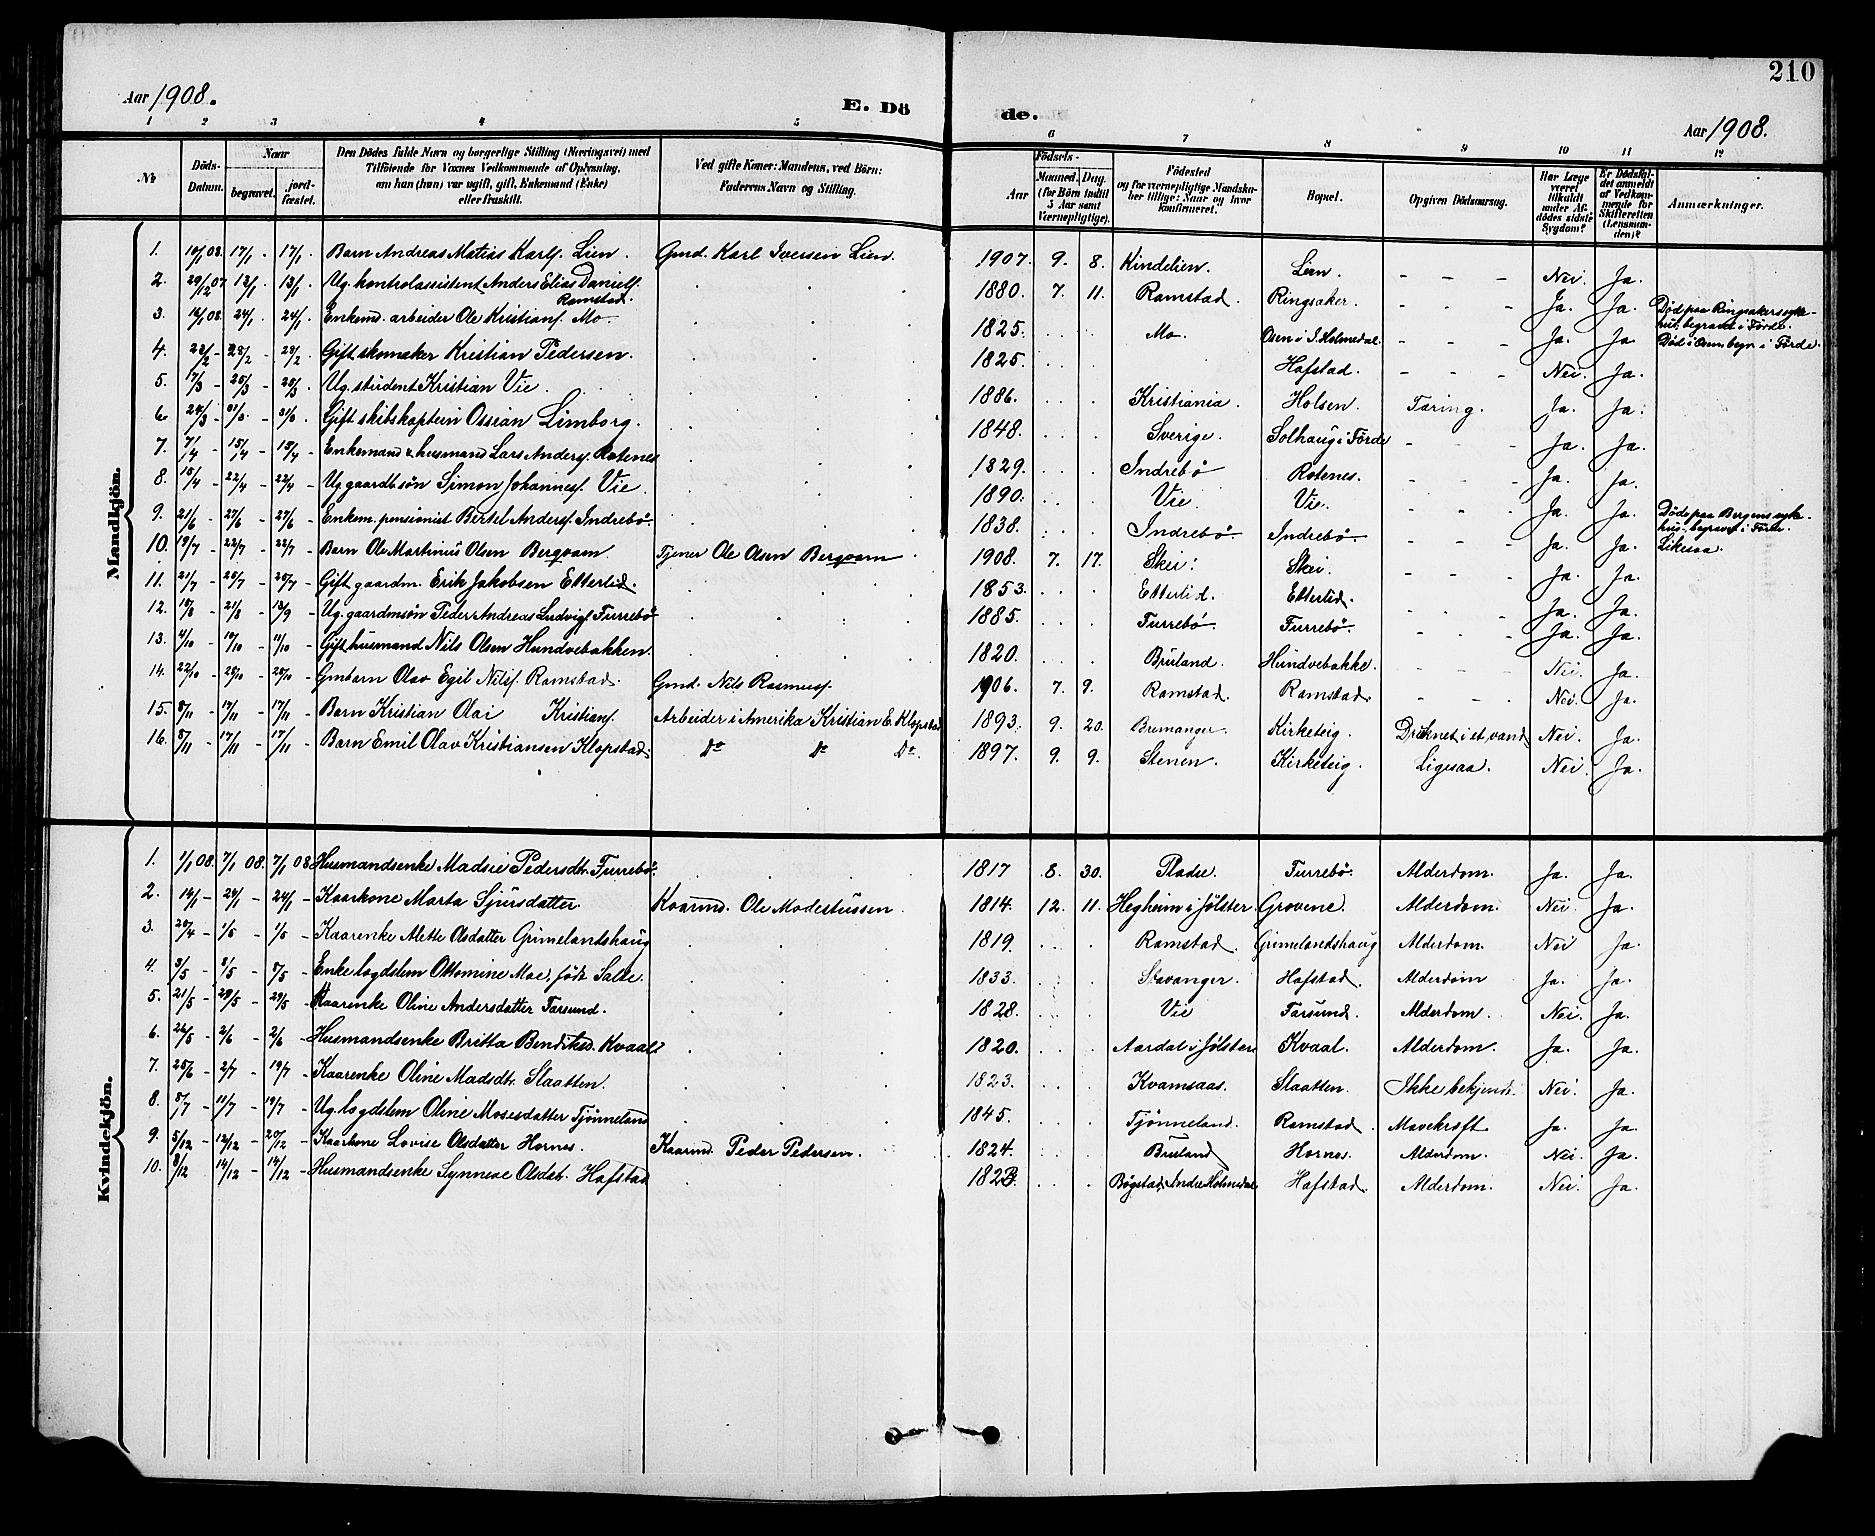 210
Aar 1908.
E. Dö
de.
Aar 1908.
1 2 3 4 5 6 7 8 9 10 11 12
№ Döds-Datum. Naar begravet. jord-fæstet. Den Dödes fulde Navn og borgerlige Stilling (Næringsvei) med Tilföiende for Voxnes Vedkommende af Oplysning, om han (hun) var ugift, gift, Enkemand (Enke) eller fraskilt. Ved gifte Koner: Mandens, ved Börn: Faderens Navn og Stilling. Födsels- Aar Maaned. Dag. (for Börn indtil 5 Aar samt Værnepligtige). Födested og for værnepligtige Mandska-ber tillige: Naar og hvor konfirmeret. Bopæl. Opgiven Dödsaarsag. Har Læge været tilkaldt under Af-dödes sidste Sygdom? Er Dödsfal-det anmeldt af Vedkom-mende for Skifteretten (Lensman-den)? Anmærkninger.
Mandkjön.
1. 10/1 08. 17/1 . 17/1 . Barn Andreas Matias Karls. Lien. Gmd. Karl Iversen Lien. 1907. 9. 8. Kindelien. Lien. - - - Nei. Ja.
2. 29/12 07 13/1 . 13/1 . Ug. kontrolassistent Anders Elias Daniels. Ramstad. 1880. 7. 11. Ramstad. Ringsaker. - - - Ja. Ja. Död paa Ringsakers syke-hus, begravet i Förde.
3. 16/1 08. 24/1 . 24/1 . Enkemd. arbeider Ole Kristians. Mo. 1825. Mo. Osen i I. Holmedal. - - - Ja. Ja. Död i Osen begr. i Förde.
4. 23/2 - 28/2 - 28/2 . Gift skomaker Kristian Pedersen. 1825. Hafstad. - - - Nei. Ja.
5. 17/3 - 25/3 - 25/3 . Ug. student Kristian Vie. 1886. Kristiania. Holsen. Tæring. Ja. Ja.
6. 24/3 - 31/3 . 31/3 Gift skibskaptein Ossian Limborg. 1848. Sverige. Solhaug i Förde - - Ja. Ja.
7. 7/4 - 15/4 - 15/4 - Enkemand & husmand Lars Anders. Rotenes 1829. Indrebö Rotenes. - - - Ja. Ja.
8. 15/4 - 22/4 - 22/4 - Ug gaardsön Simon Johannes. Vie. 1890. Vie. Vie. - - - Ja. Ja.
9. 21/6 - 27/6 - 27/6 - Enkem. pensionist Bertel Anders. Indrebö. 1838. Indrebö. Indrebö. - - - Ja. Ja. Döde paa Bergens syke-hus - begravet i Förde.
10. 19/7 - 22/7 - 22/7 - Barn Ole Martinius Olsen Bergvam. Tjener Ole Olsen Bergvam. 1908. 7. 17. Skei. Skei. - - - Ja. Ja. Likesaa.
11. 21/7 - 25/7 - 25/7 - Gift gaardm. Erik Jakobsen Etterlid. 1853. Etterlid. Etterlid. - - - Ja. Ja.
12. 18/8 - 21/8 - 13/9 - Ug. gaardmsön Peder Andreas Ludvigs. Furrebö 1885. Furrebö. Furrebö. - - - Ja. Ja.
13. 4/10 - 10/10 - 11/10 - Gift husmand Nils Olsen Hundvebakken. 1820. Bruland. Hundvebakke. - - - Nei. Ja.
14. 22/10 - 28/10 - 28/10 - Gmbarn Olav Egil Nils. Ramstad. Gmd. Nils Rasmus. 1906. 7. 9. Ramstad. Ramstad. - - Nei. Ja.
15. 8/11 - 17/11 - 17/11 - Barn Kristian Olai Kristians. Arbeider i Amerika Kristian E. Klopstad 1893. 9. 20. Bremanger. Kirketeig. Druknet i et vand Nei. Ja.
16. 8/11 - 17/11 - 17/11 - Barn Emil Olav Kristiansen Klopstad. Do Do Do. 1897. 9. 9. Stenen. Kirketeig. Ligesaa. Nei. Ja.
Kvindekjön.
1. 1/1 08. 7/1 08. 7/1 08. Husmandsenke Madsie Pedersdtr. Furrebö. 1817 8. 30. Furrebö. Alderdom. Ja. Ja.
2. 14/1 - 24/1 - 24/1 - Kaarkone Marta Sjursdatter Kaarmd. Ole Modestussen. 1814. 12. 11. Hegheim i Jölster Grovene. Alderdom. Nei. Ja.
3. 20/4 - 1/5 - 1/5 - Kaarenke Alette Olsdatter Grimelandshaug 1819. Ramstad. Grimelandshaug Alderdom. Nei Ja.
4. 3/5 - 8/5 - 8/5 - Enke logdslem Ottomine Moe, född Salte. 1833. Stavanger. Hafstad. Alderdom Ja. Ja.
5. 21/5 - 29/5 - 29/5 - Kaarenke Oline Andersdatter Farsund. 1828. Vie Farsund. Alderdom. Nei. Ja.
6. 26/5 - 2/6 - 2/6 - Husmandsenke Britta Bendiksd. Kvaal. 1820. Aardal i Jölster Kvaal. Alderdom. Ja. Ja.
7. 25/6 - 2/7 - 19/7 - Kaarenke Oline Madsdtr. Slaatten. 1823. Kvamsaas. Slaatten. Ikke bekjendt. Nei. Ja.
8. 5/7 - 11/7 - 19/7 - Ug. logdslem Oline Mosesdatter Tjönneland 1845. Tjönneland. Ramstad. Mavekræft. Ja. Ja.
9. 5/12 - 12/12 - 20/12 - Kaarkone Lovise Olsdatter Hornes. Kaarmd. Peder Pedersen. 1824. Bruland Hornes. Alderdom. Nei. Ja.
10. 8/12 14/12 - 14/12 - Husmandsenke Synneve Olsdtr. Hafstad 1823. Bögstad, Indre Holmedal Hafstad. Alderdom. Nei. Ja.